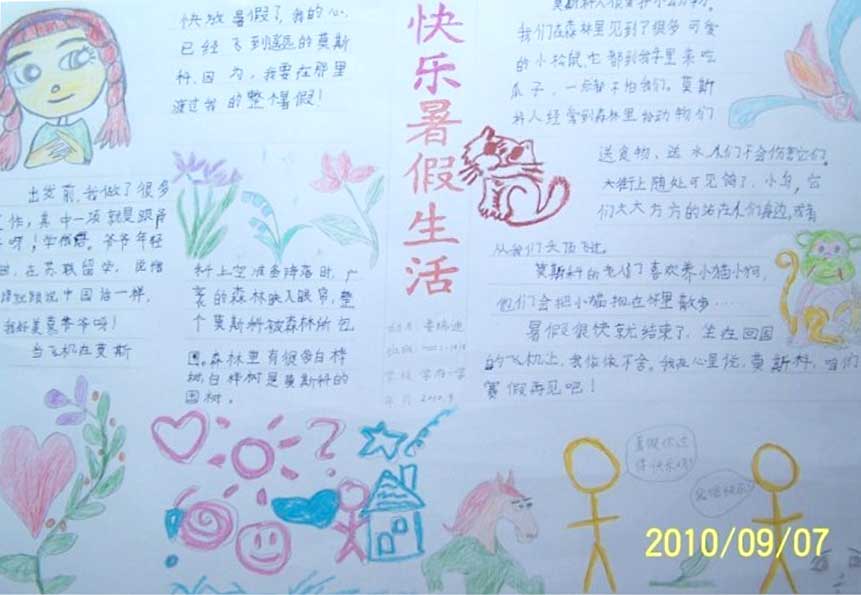 快乐暑假生活
快放暑假了,我的心
已经飞到遥远的莫斯
科,因为,我要在那里
渡过我的整个暑假!
出发前,我做了很多
工作,其中一项就是跟爷
爷年轻
在苏联留学,
中国话一样,
我好羡慕爷爷呀!
当飞机在莫斯
科上空准备降落时,广
袤的森林映入眼帘,整
个莫斯科被森林所包
围。森林里有很多白桦
树,白桦树是莫斯科的
国树。
姓名
班级
学校
年月 2010.9
我们在森林里见到了很多可爱
的小松鼠,它都到我手里来吃
瓜子,一点都不怕我们。莫斯
科人经常到森林里给动物们
送食物、送水,人们不会伤害它们。
大街上随处可见鸽子、小鸟,它
们大大方方的站在人们身边,或者
从我们头顶飞过。
莫斯科的老人喜欢养小猫小狗,
他们会把小猫抱在怀里散步……
暑假很快就结束了,坐在回国
的飞机上,我依依不舍。我在心里说,莫斯科,咱们
寒假再见吧!
暑假你过
得快乐吗
2010/09/07